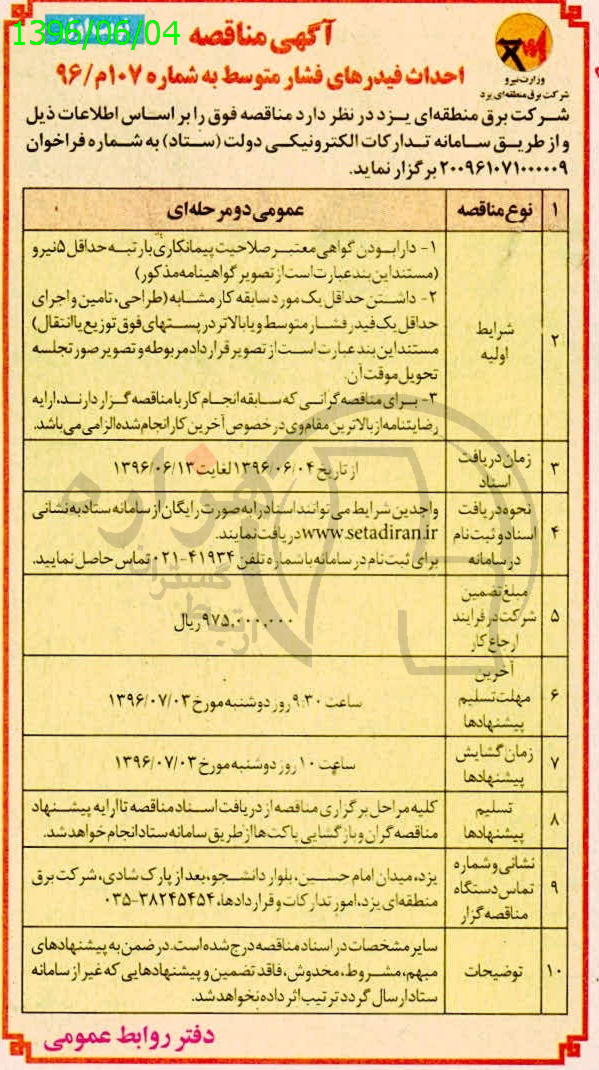 1396/06/04
آگهی مناقصه
احداث فیدرهای فشار متوسط به شماره ۱۰۷م/۹۶
وزارت نیرو
شرکت برق منطقه‌ای یزد
شرکت برق منطقه‌ای یزد در نظر دارد مناقصه فوق را بر اساس اطلاعات ذیل
و از طریق سامانه تدارکات الکترونیکی دولت (ستاد) به شماره فراخوان
۲۰۰۹۶۱۰۷۱۰۰۰۰۰۹ برگزار نماید.
۱ نوع مناقصه عمومی دو مرحله‌ای
۲ شرایط اولیه
۱- دارا بودن گواهی معتبر صلاحیت پیمانکاری با رتبه حداقل ۵ نیرو
(مستند این بند عبارت است از تصویر گواهینامه مذکور)
۲- داشتن حداقل یک مورد سابقه کار مشابه (طراحی، تامین و اجرای
حداقل یک فیدر فشار متوسط و یا بالاتر در پستهای فوق توزیع یا انتقال)
مستند این بند عبارت است از تصویر قرارداد مربوطه و تصویر صورتجلسه
تحویل موقت آن.
۳- برای مناقصه گرانی که سابقه انجام کار با مناقصه گزار دارند، ارایه
رضایتنامه از بالاترین مقام وی در خصوص آخرین کار انجام شده الزامی می باشد.
۳ زمان دریافت اسناد از تاریخ ۱۳۹۶/۰۶/۰۴ لغایت ۱۳۹۶/۰۶/۱۳
۴ نحوه دریافت اسناد و ثبت نام در سامانه
واجدین شرایط می توانند اسناد را به صورت رایگان از سامانه ستاد به نشانی
www.setadiran.ir دریافت نمایند.
برای ثبت نام در سامانه با شماره تلفن ۴۱۹۳۴-۰۲۱ تماس حاصل نمایید.
۵ مبلغ تضمین شرکت در فرایند ارجاع کار ۹۷۵,۰۰۰,۰۰۰ ریال
۶ آخرین مهلت تسلیم پیشنهادها ساعت ۹:۳۰ روز دوشنبه مورخ ۱۳۹۶/۰۷/۰۳
۷ زمان گشایش پیشنهادها ساعت ۱۰ روز دوشنبه مورخ ۱۳۹۶/۰۷/۰۳
۸ تسلیم پیشنهادها
کلیه مراحل برگزاری مناقصه از دریافت اسناد مناقصه تا ارایه پیشنهاد
مناقصه گران و بازگشایی پاکت ها از طریق سامانه ستاد انجام خواهد شد.
۹ نشانی و شماره تماس دستگاه مناقصه گزار
یزد، میدان امام حسین، بلوار دانشجو، بعد از پارک شادی، شرکت برق
منطقه‌ای یزد، امور تدارکات و قراردادها، ۳۸۲۴۵۴۵۴-۰۳۵
۱۰ توضیحات
سایر مشخصات در اسناد مناقصه درج شده است. در ضمن به پیشنهادهای
مبهم، مشروط، مخدوش، فاقد تضمین و پیشنهادهایی که غیر از سامانه
ستاد ارسال گردد ترتیب اثر داده نخواهد شد.
دفتر روابط عمومی
هزاره
گسترش
ارتباط